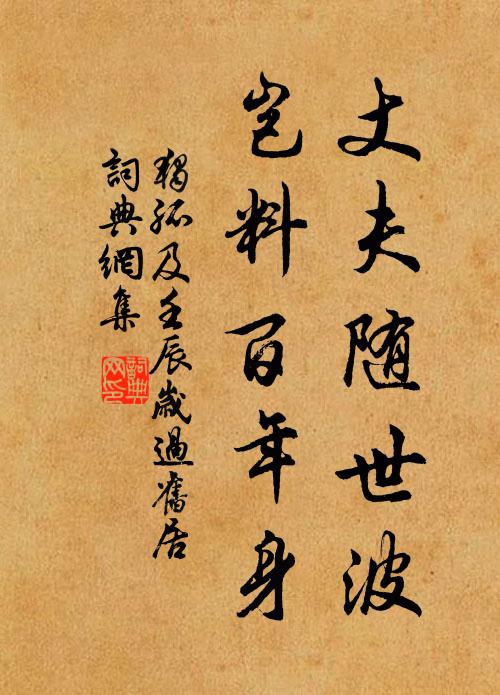 丈夫随世波
岂料百年身
獨孤及壬辰歲過舊居
詞典網集
詞典
网印